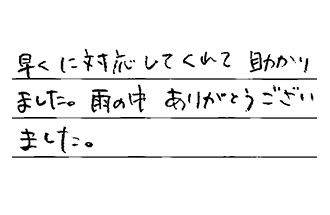 早くに対応してくれて 助かり
ました。雨の中 ありがとうござい
ました。